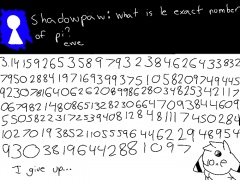 Shadowpaw: what is le exact number
of pi?
ewe
3.1415926535897932384626433832
795028841971693993751058209749445
9230781640628620899862803482534211 7
067982148086513282306647093844609
550582231725359408128481117450284
102701938521105559644622948954
930381964428810 97
I give up...